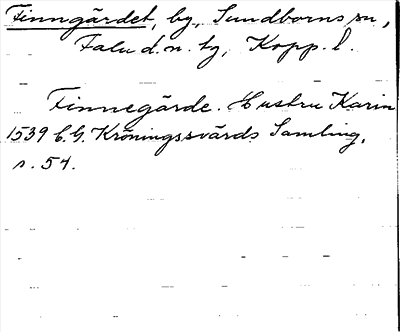 Finngärdet, by, Sundborns sn,
Falu d.n. tg, Kopp. l.
Finnegärde. Hustru Karin
1539 C.G. Kröningssvärds Samling,
s. 54.